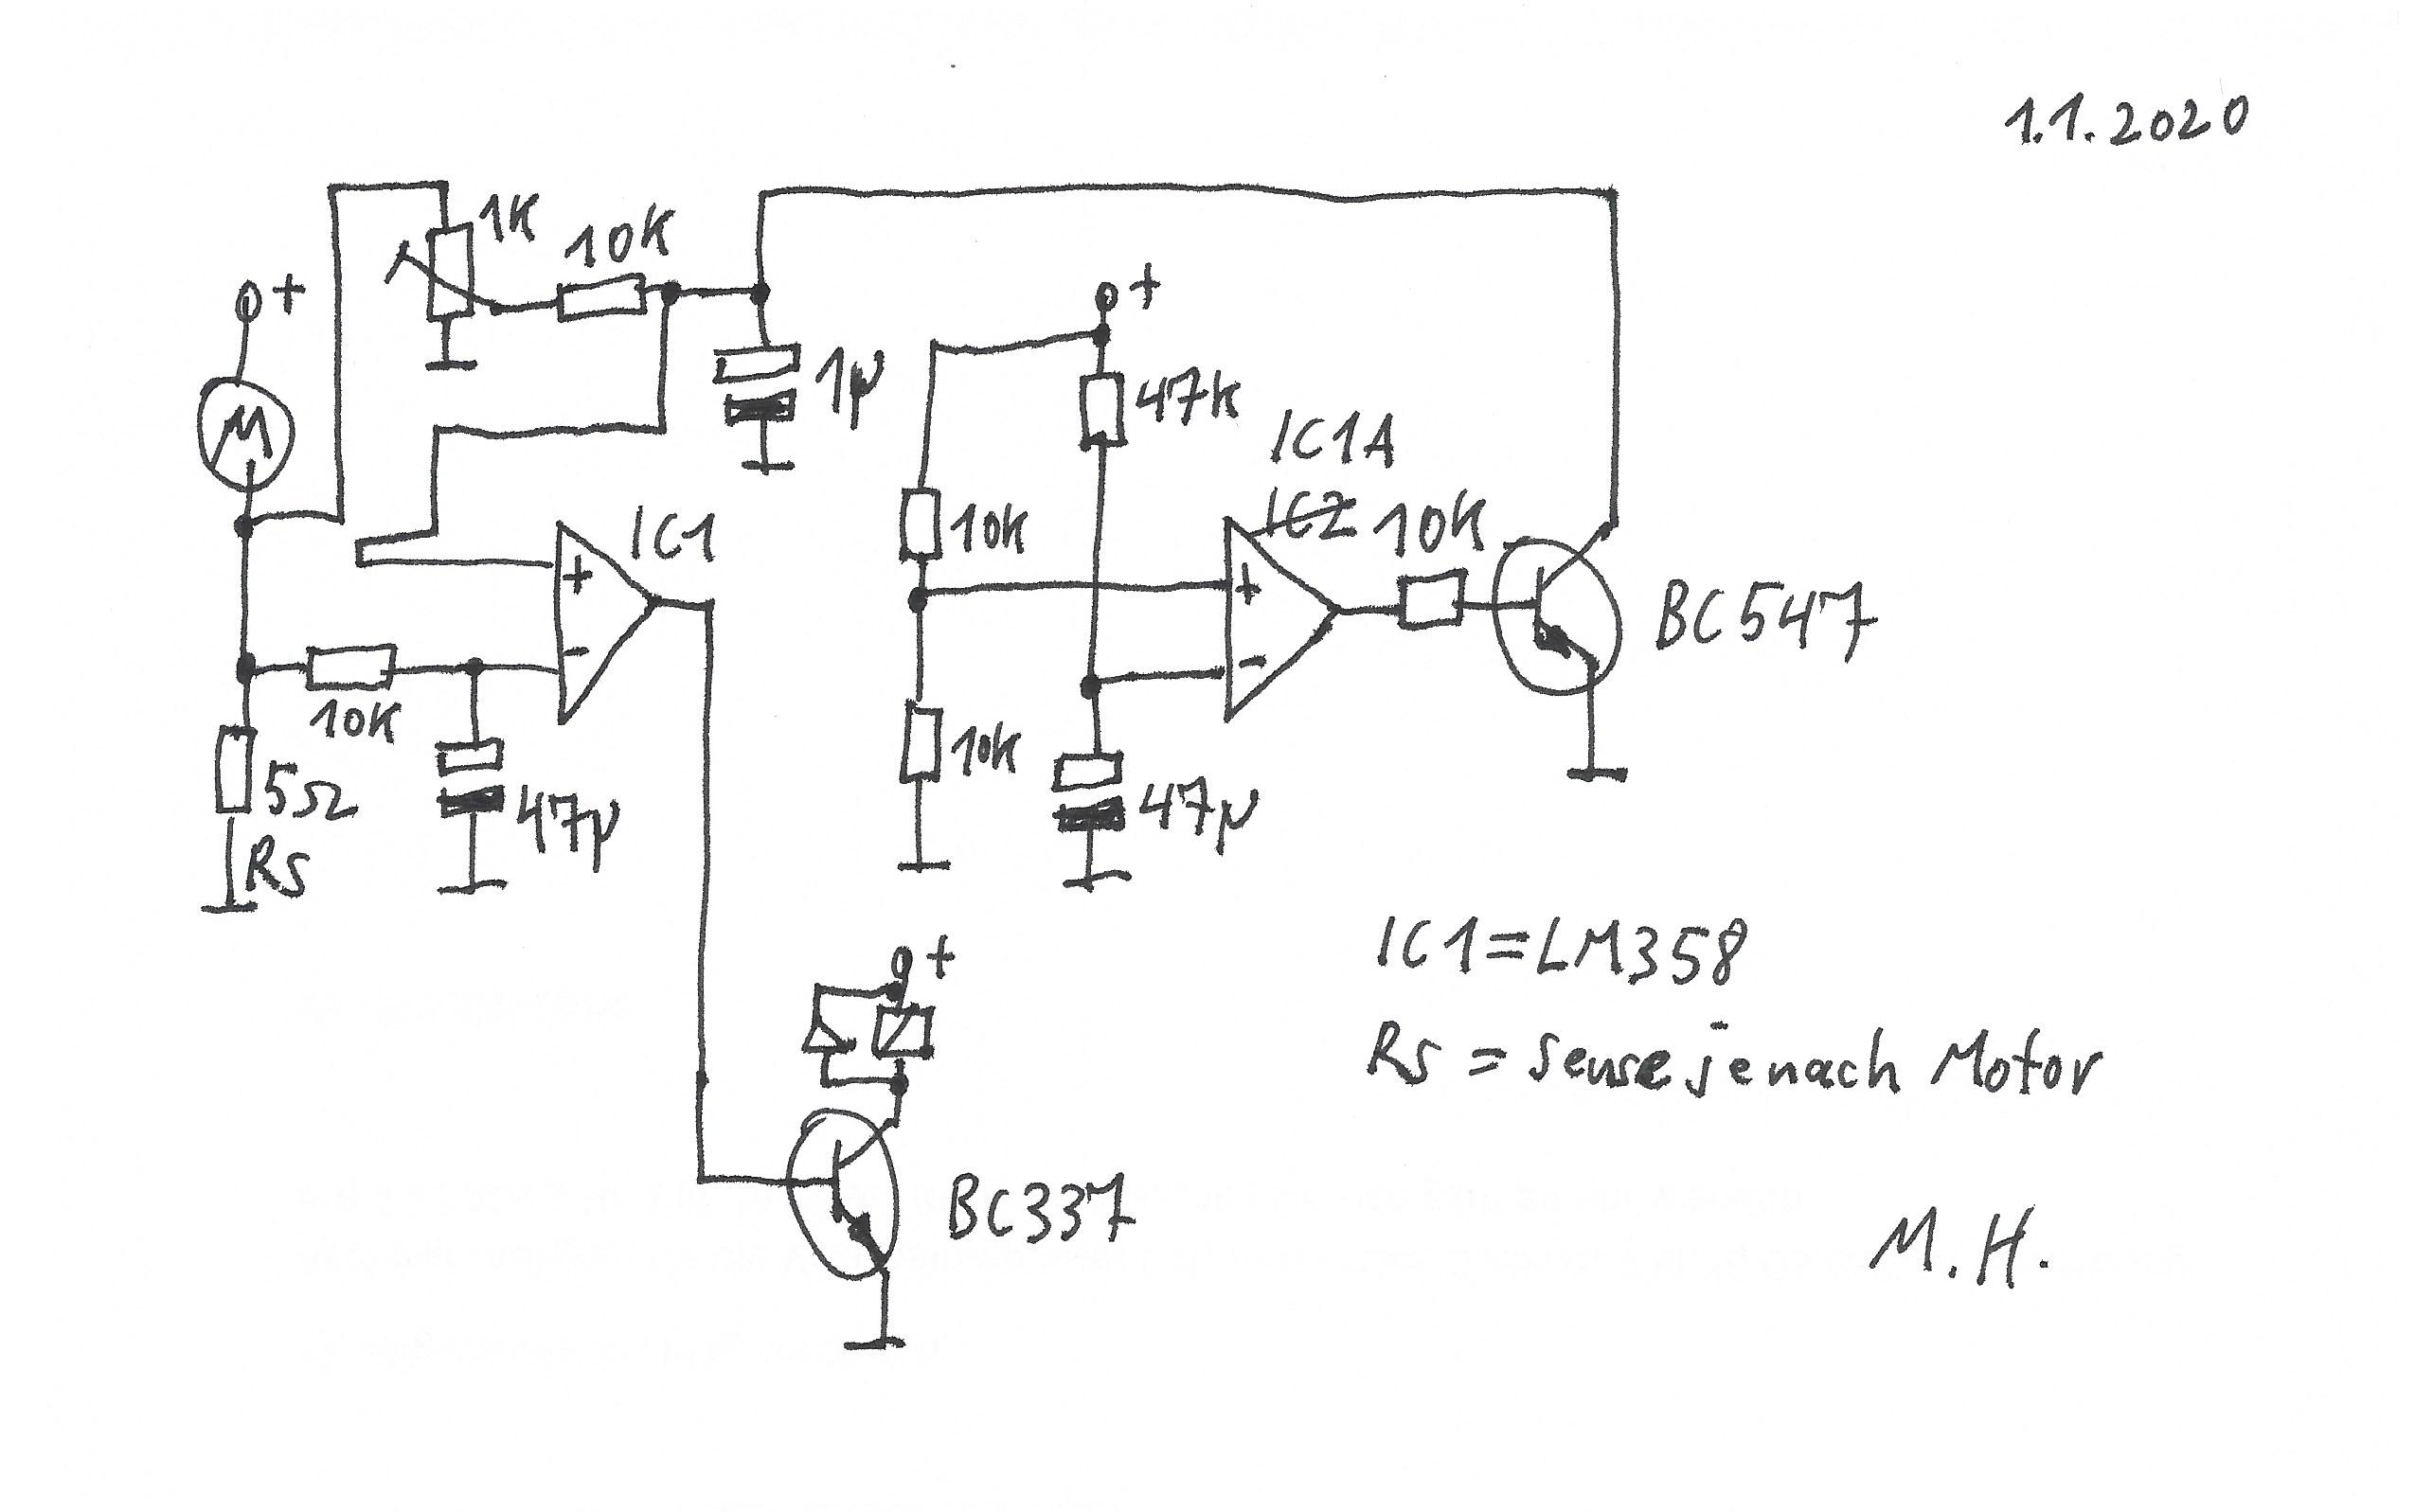 1.1.2020
1K
10K
+
+
1µ
47K
M
IC1A
IC2
10K
10K
IC1
BC547
+
-
+
-
10K
10K
5Ω
Rs
47µ
47µ
+
IC1=LM358
Rs = Sense je nach Motor
BC337
M.H.